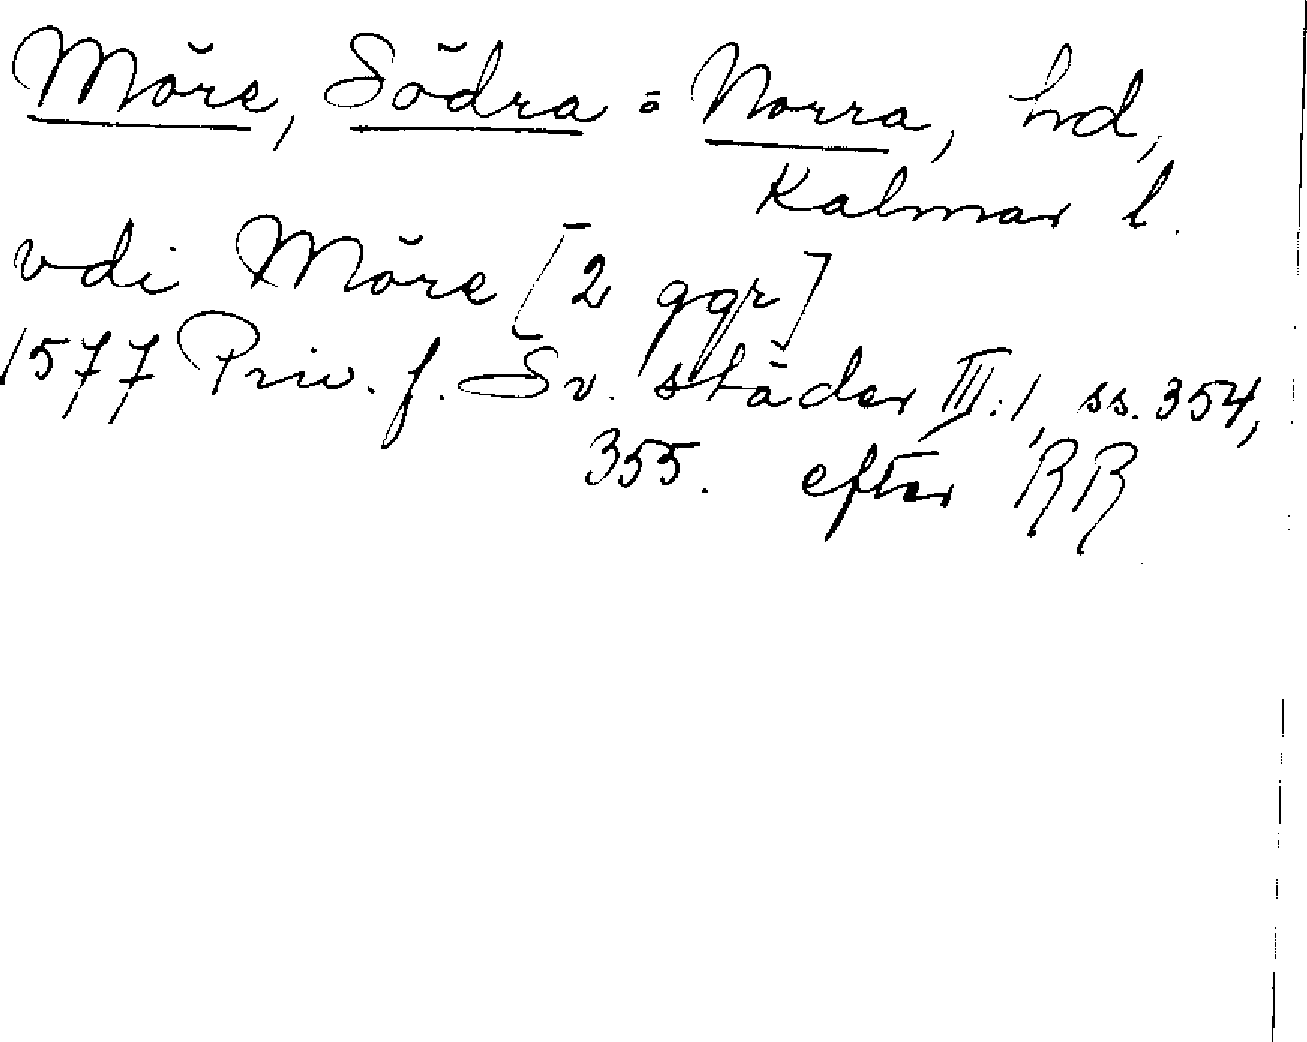 Möre, Södra o Norra, hd,
Kalmar l.
vdi Möre [2 ggr]
1577 Priv. f. Sv. städer III:1, ss. 354,
355. efter RR